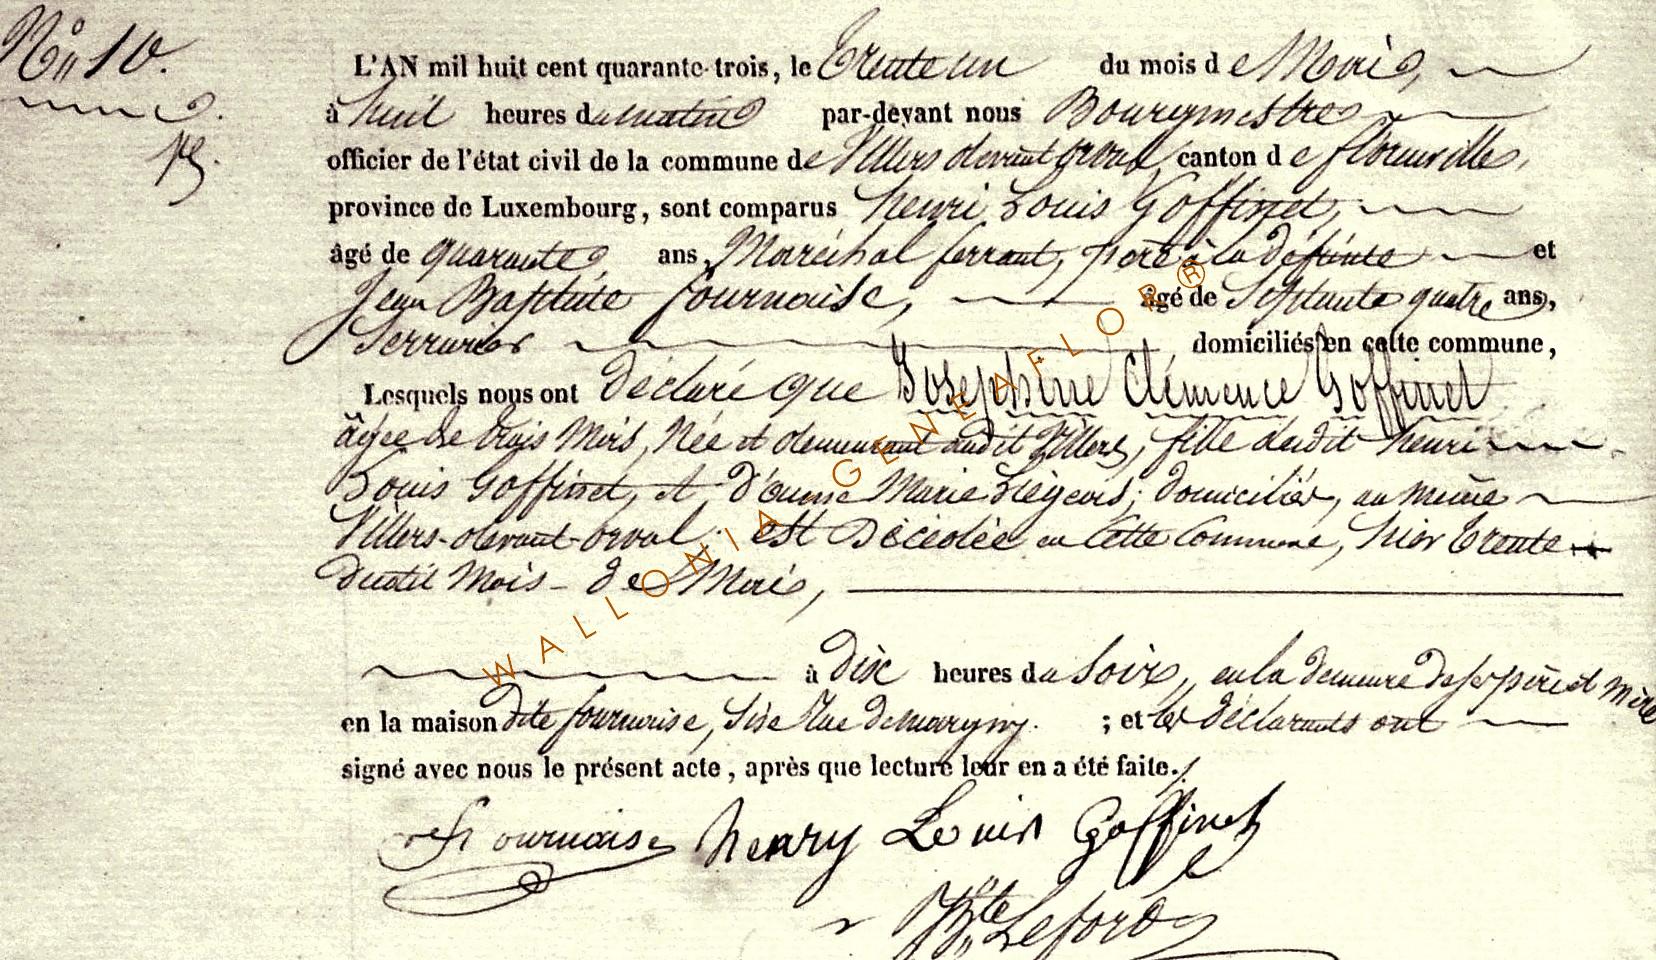 N° 10.
L'AN mil huit cent quarante-trois, le trente un du mois de Mai,
à huit heures du matin par-devant nous Bourgmestre
officier de l'état civil de la commune de Villers devant Orval, canton de florenville,
province de Luxembourg, sont comparus henri Louis Goffinet,
âgé de quarante, ans, Maréchal ferrant, père à la défunte et
Jean Baptiste fournaise, âgé de Septante quatre ans,
Serrurier domiciliés en cette commune,
Lesquels nous ont déclaré que Josephine Clémence Goffinet
âgée de trois Mois, Née et demeurant audit Villers, fille dudit henri
Louis Goffinet, et d'anne Marie Liégeois, domiciliés, au même
Villers-devant-Orval est Décédée en Cette Commune, hier trente
dudit Mois de Mai,
à dix heures du Soir, en la demeure de ses père et Mère
en la maison dite fournaise, Sise Rue de margny. ; et les déclarants ont
signé avec nous le présent acte, après que lecture leur en a été faite.
fournaise henry Louis Goffinet
WALLONIA GENEAFLOR®